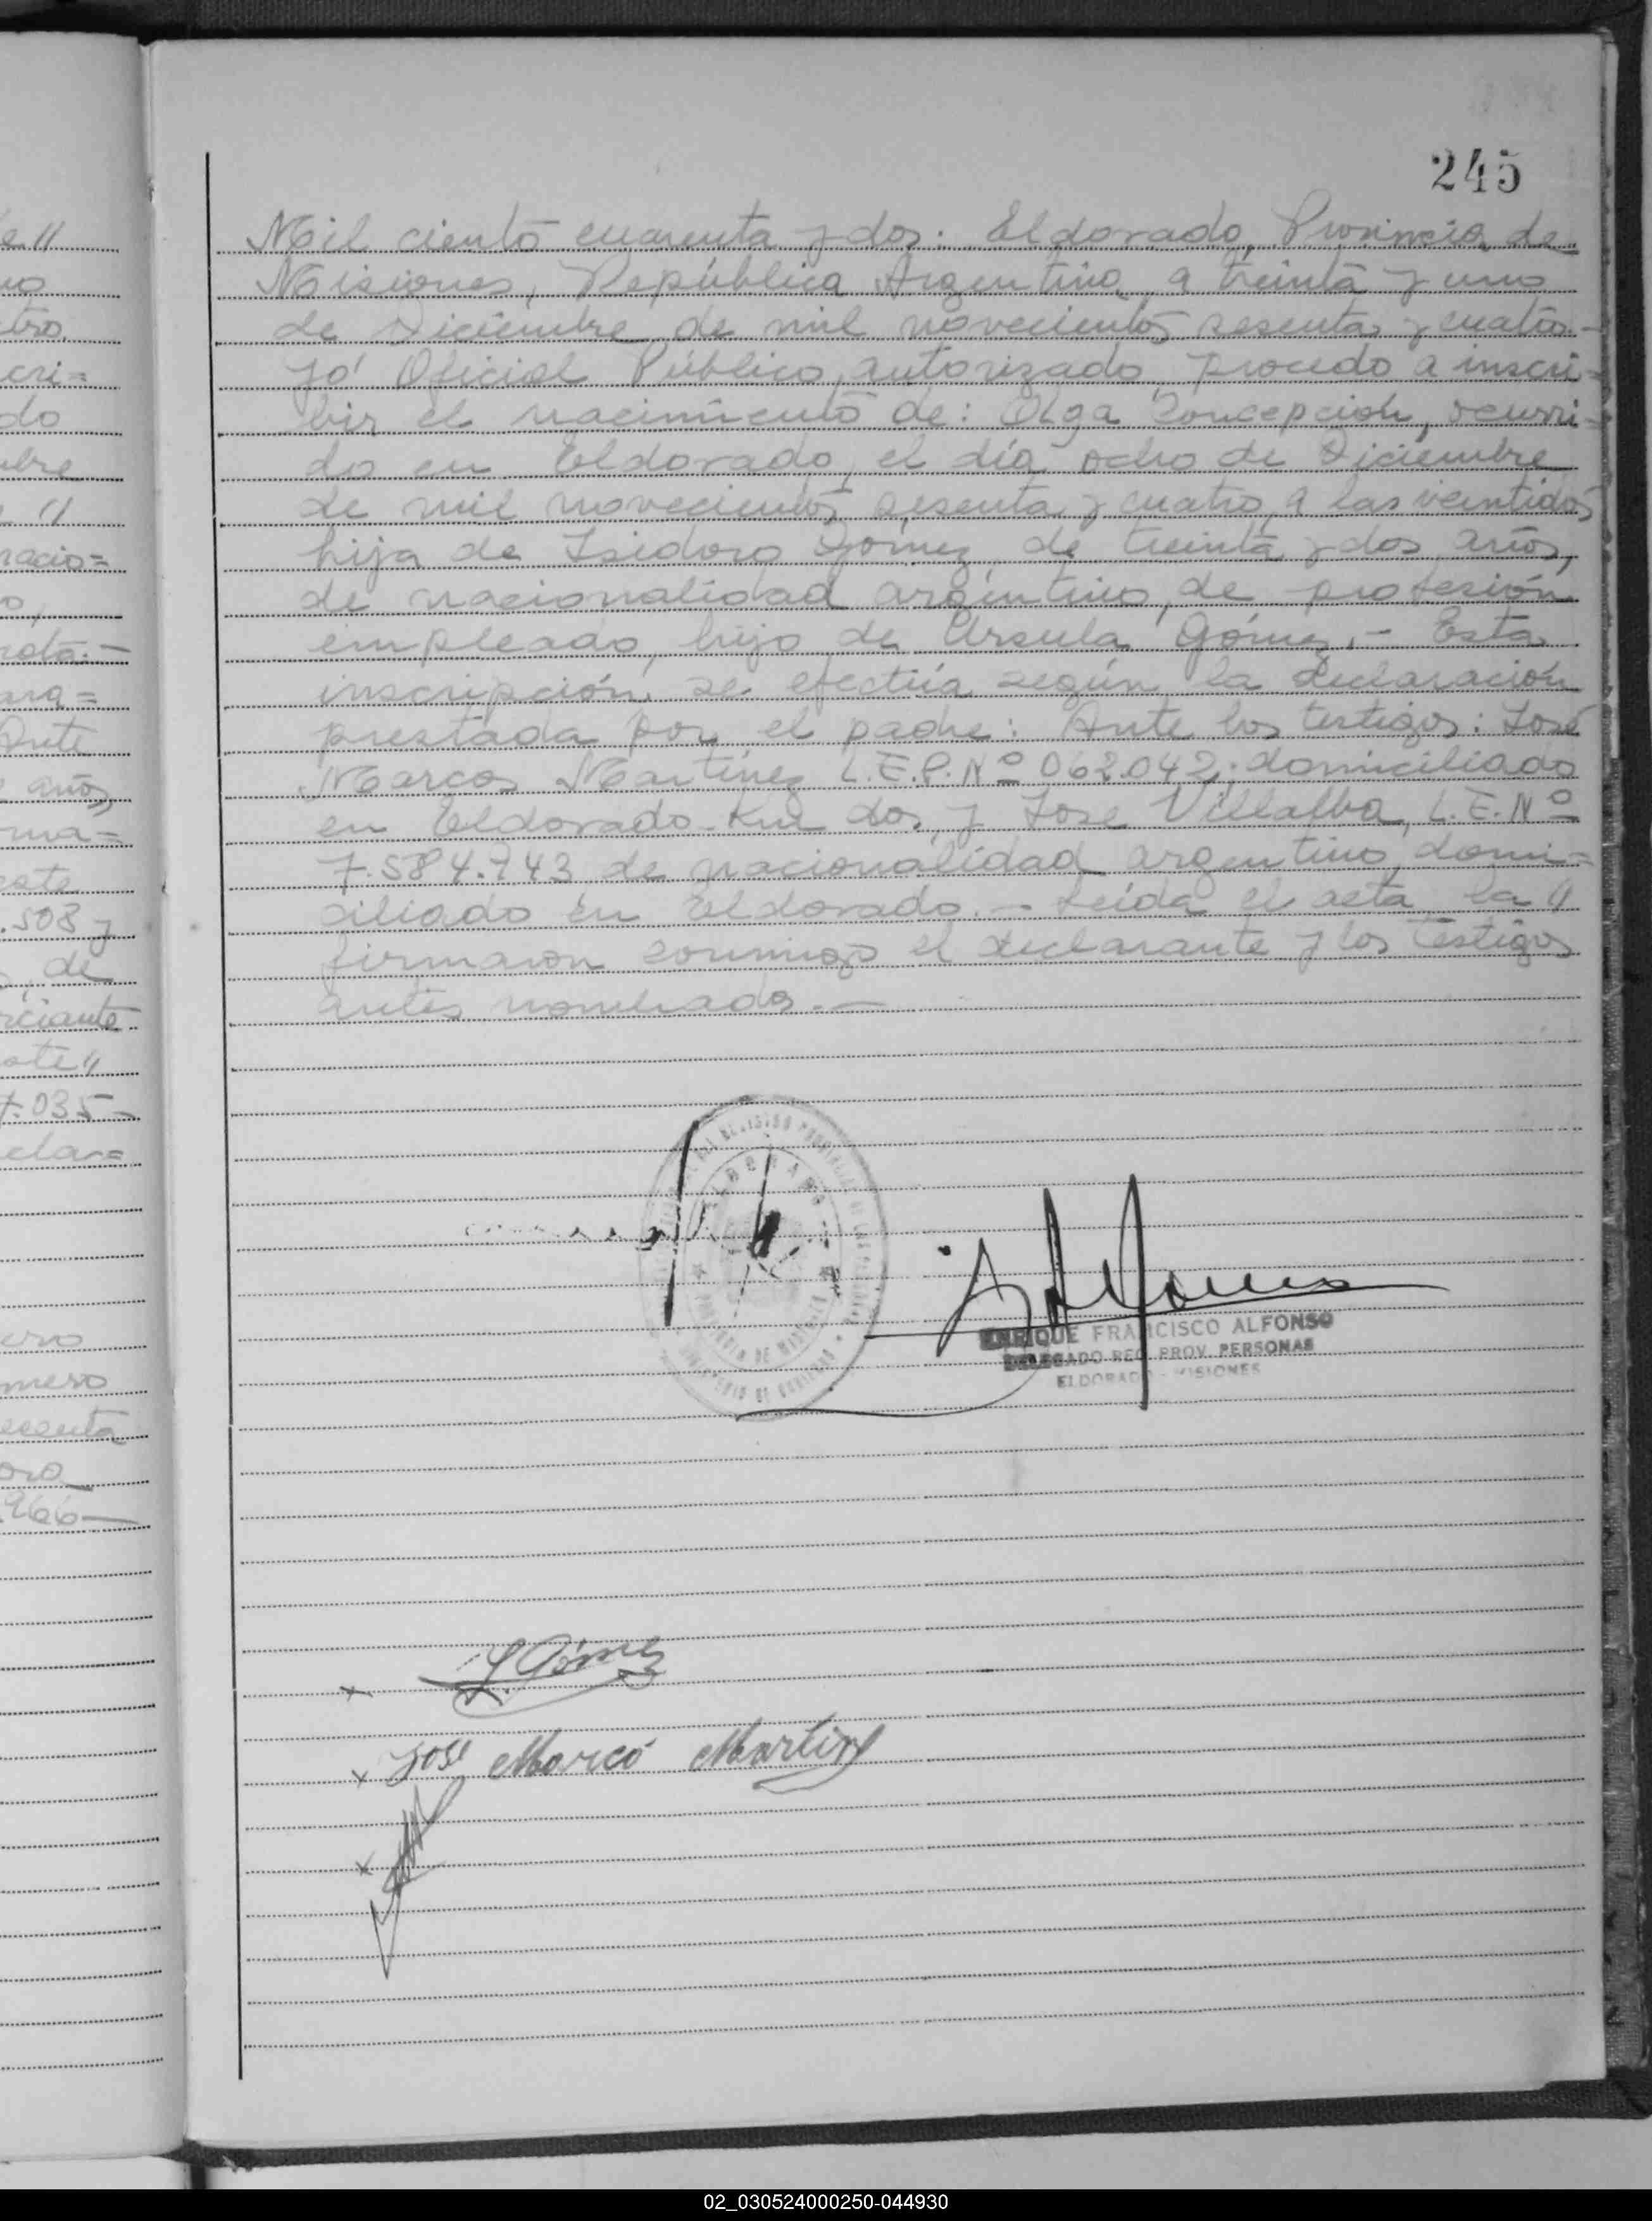 e "
no
tro.
cri=
do
bre
"
nacio=
o,
nota.-
ara=
Ante
años,
ma=
este
.508 y
, de
rciante
ote "
7.035-
clar=
ero
mero
esenta
oro
966-
245
Mil ciento cuarenta y dos. Eldorado, Provincia de
Misiones, República Argentina, a treinta y uno
de Diciembre de mil novecientos sesenta y cuatro.-
Yó Oficial Público, autorizado, procedo a inscri=
bir el nacimiento de: Olga Concepción, ocurri=
do en Eldorado, el día ocho de Diciembre
de mil novecientos sesenta y cuatro, a las veintidos
hija de Isidoro Gómez, de treinta y dos años,
de nacionalidad argentino, de profesión
empleado, hijo de Ursula Gómez.- Esta
inscripción, se efectúa según la declaración
prestada por el padre: Ante los testigos: José
Marcos Martínez L.E.P. Nº 062.042, domiciliado
en Eldorado-Km dos, y José Villalba, L.E. Nº
7.584.743 de nacionalidad argentino, domi=
ciliado en Eldorado.- Leída el acta, la "
firmaron conmigo el declarante y los testigos
antes nombrados.-
ELDORADO
PROVINCIA DE MISIONES
ENRIQUE FRANCISCO ALFONSO
DELEGADO REG. PROV. PERSONAS
ELDORADO - MISIONES
x I. Gómez
x José Marcó Martinez
x
02_030524000250-044930